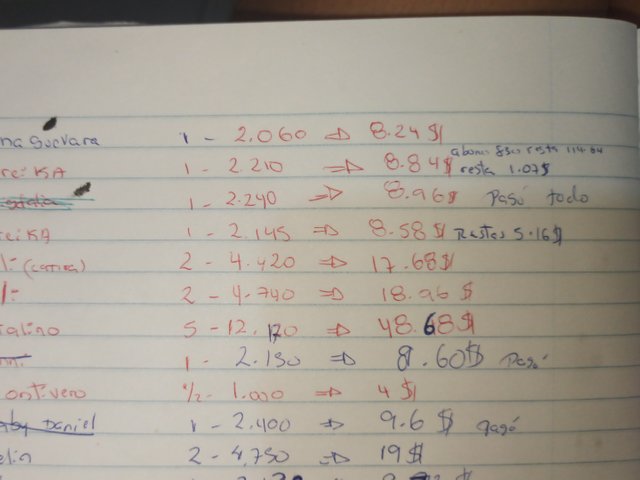 na Guevara 1 - 2.060 => 8.24 $
abono 850 resta 114 64
rei KA 1 - 2.210 => 8.84 $ resta 1.07 $
1 - 2.240 => 8.96 $ Pasó todo
rei KA 1 - 2.145 => 8.58 $ Restas 5.16 $
2 - 4.420 => 17.68 $
2 - 4.740 => 18.96 $
talino 5 - 12.170 => 48.68 $
1 - 2.150 => 8.60 $ Pasó
ontivero 1/2 - 1.000 => 4 $
Daniel 1 - 2.400 => 9.6 $ pasó
elin 2 - 4,750 => 19 $